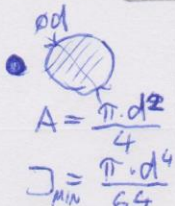 ød
A = π·d²/4
J_MIN = π·d⁴/64